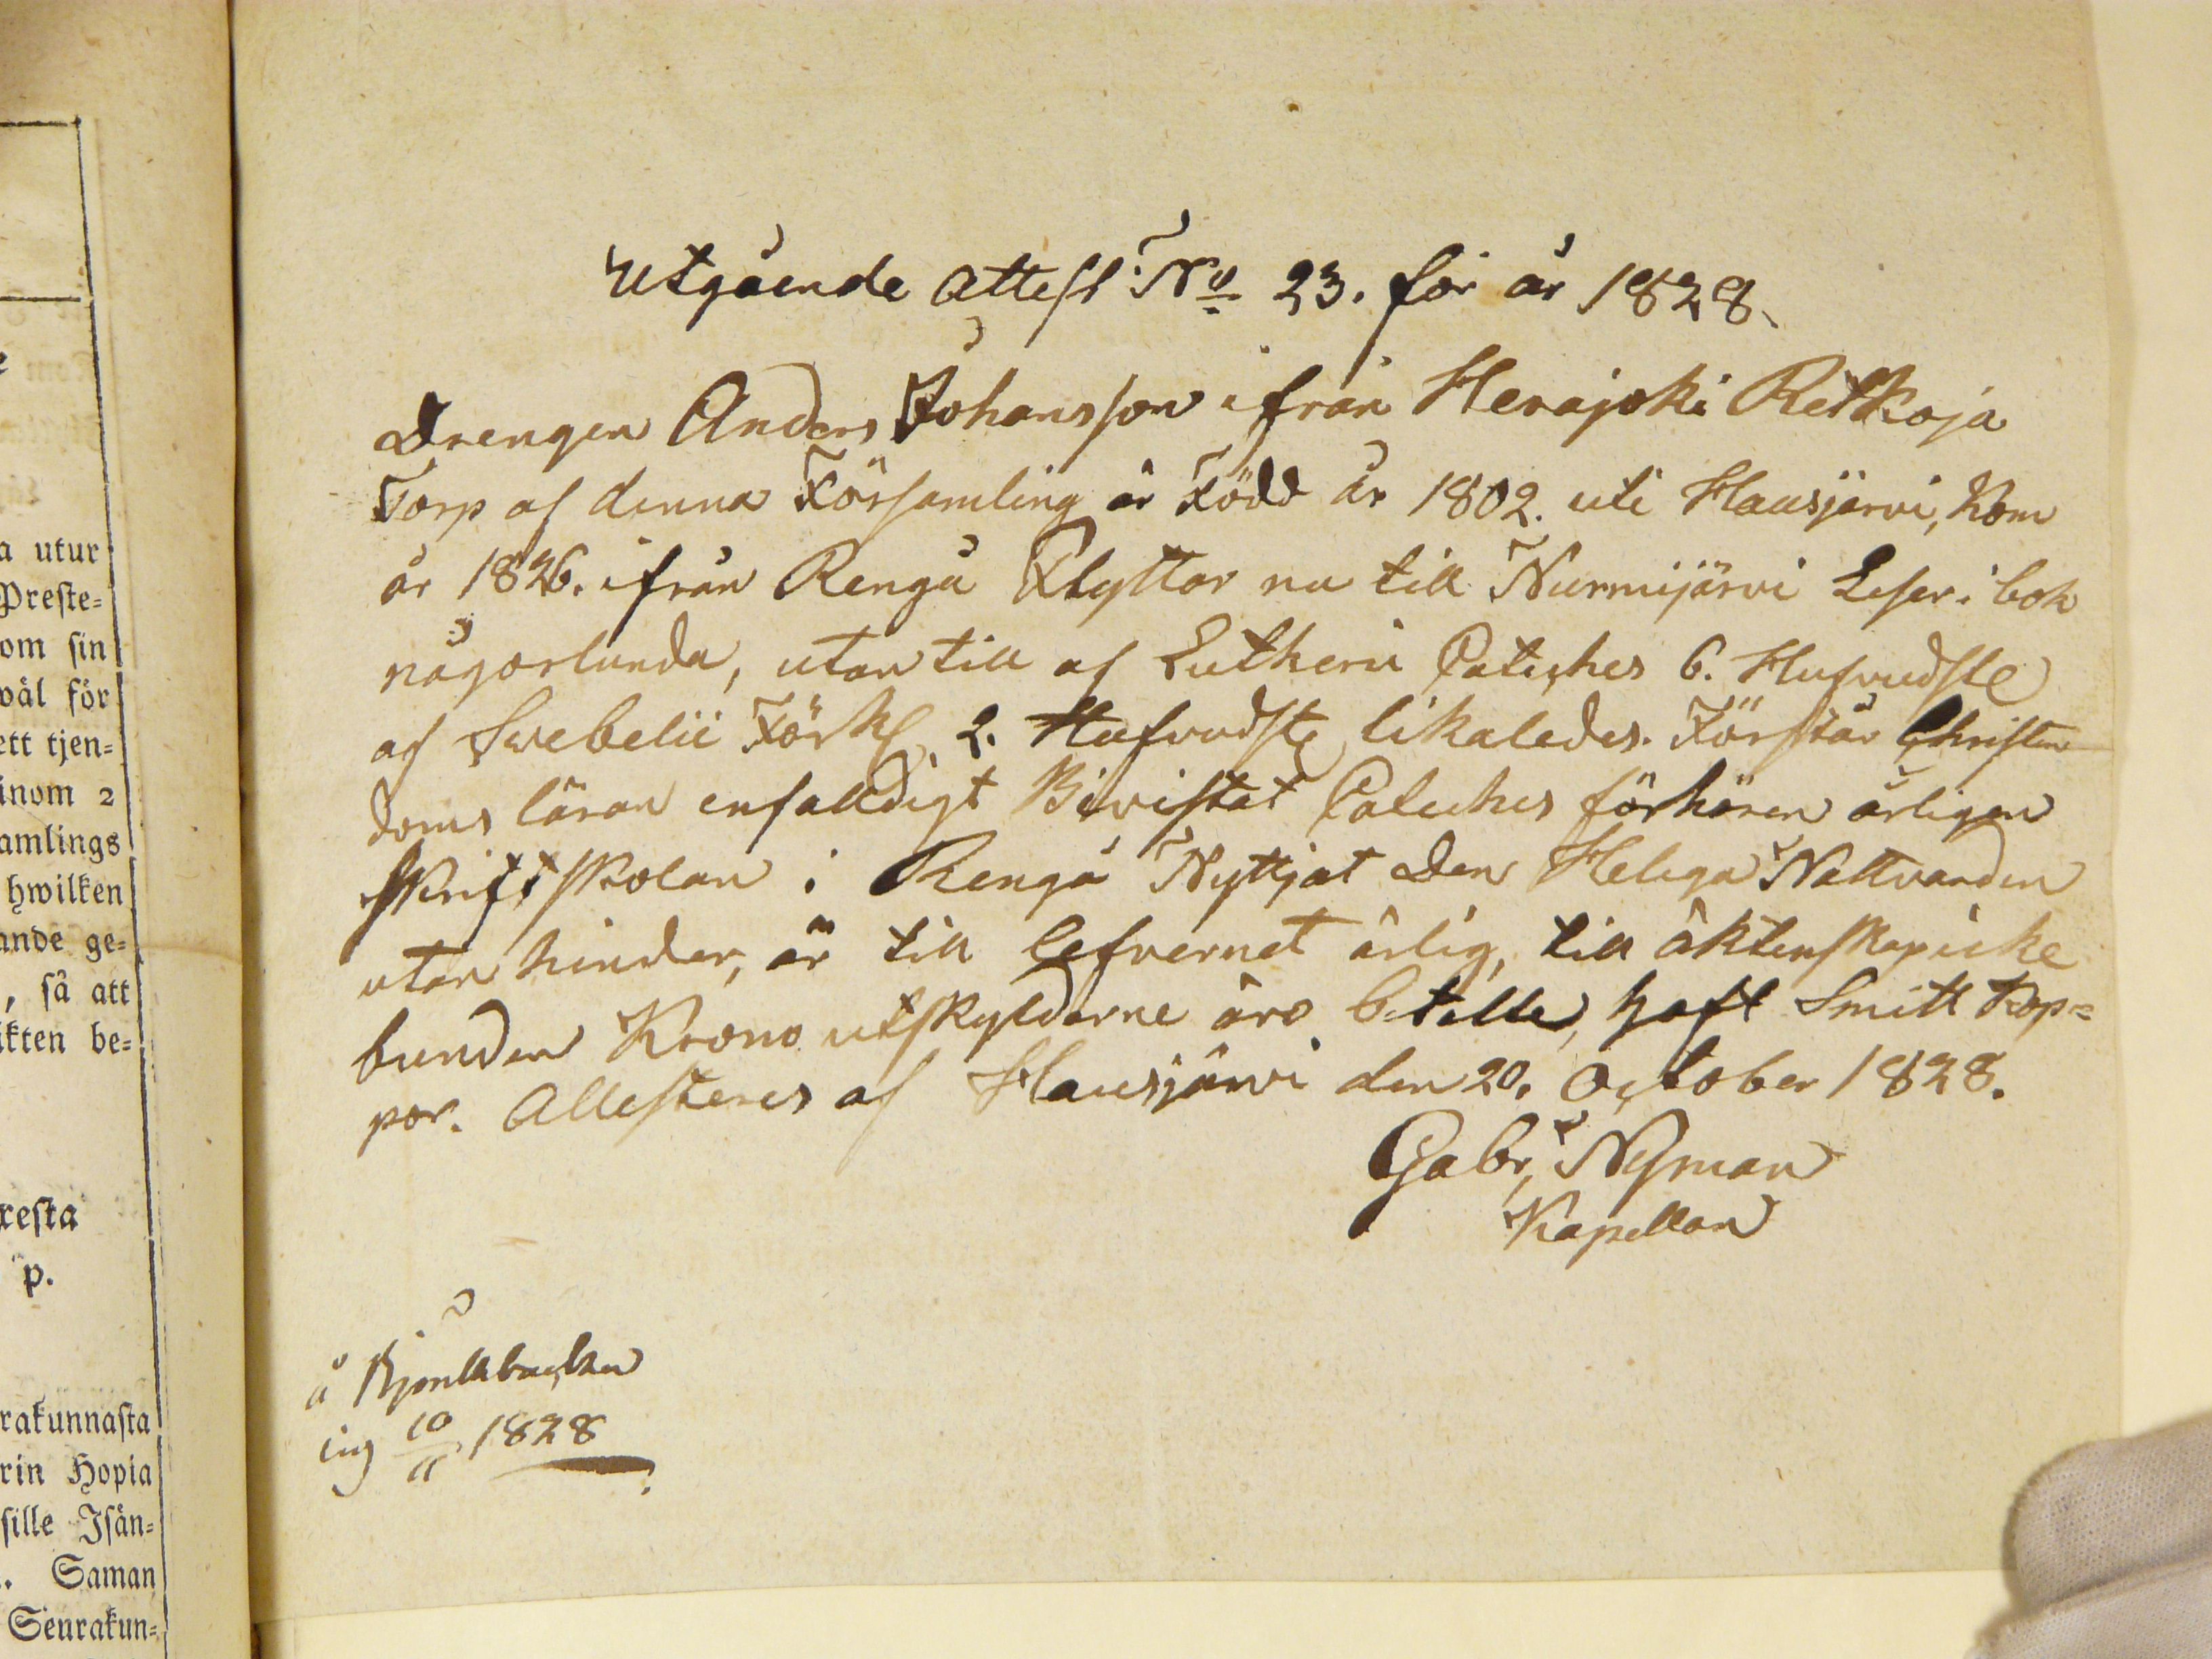 Utgående Attest No 23. för år 1828.
Drengen Anders Johansson ifrån Herajoki Retkoja
Torp af denna Församling är Född år 1802. uti Hausjärvi, Kom
år 1826. ifrån Rengå Flyttar nu till Nurmijärvi Leser i bok
någorlunda, utan till af Lutheri Cateches 6. Hufvudste
af Svebelii Förkl. 2. Hufvudste likaledes. Förstår Christen
doms läran enfalldigt Bivistat Catechis förhören årligen
Skriftskolan i Rengå Nyttjat Den Helega Nattvarden
utan hinder, är till lefvernet ärlig, till äktenskap icke
bunden Krono utskylderne äro betallte, haft Smitt Kop=
por. Attesteres af Hausjärvi den 20. October 1828.
Gabr. Nyman
Kapellan
å
ing 10/11 1828
a utur
Preste=
om sin
wäl för
ett tjen=
inom 2
amlings
hwilken
ande ge=
, så att
ikten be=
resta
p.
rakunnasta
rin Hopia
sille Isän=
. Saman
Seurakun=